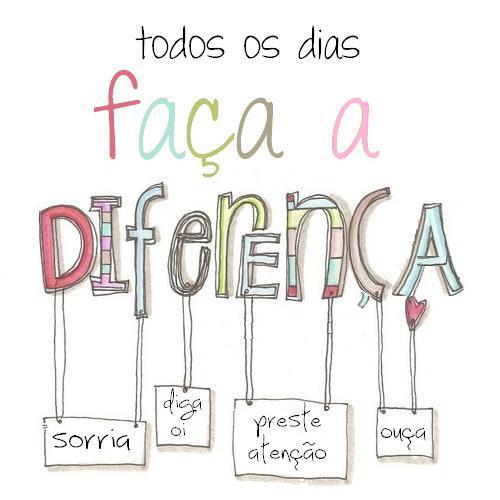 todos os dias
faça a
DIfErENÇA
sorria
diga
oi
preste
atenção
ouça